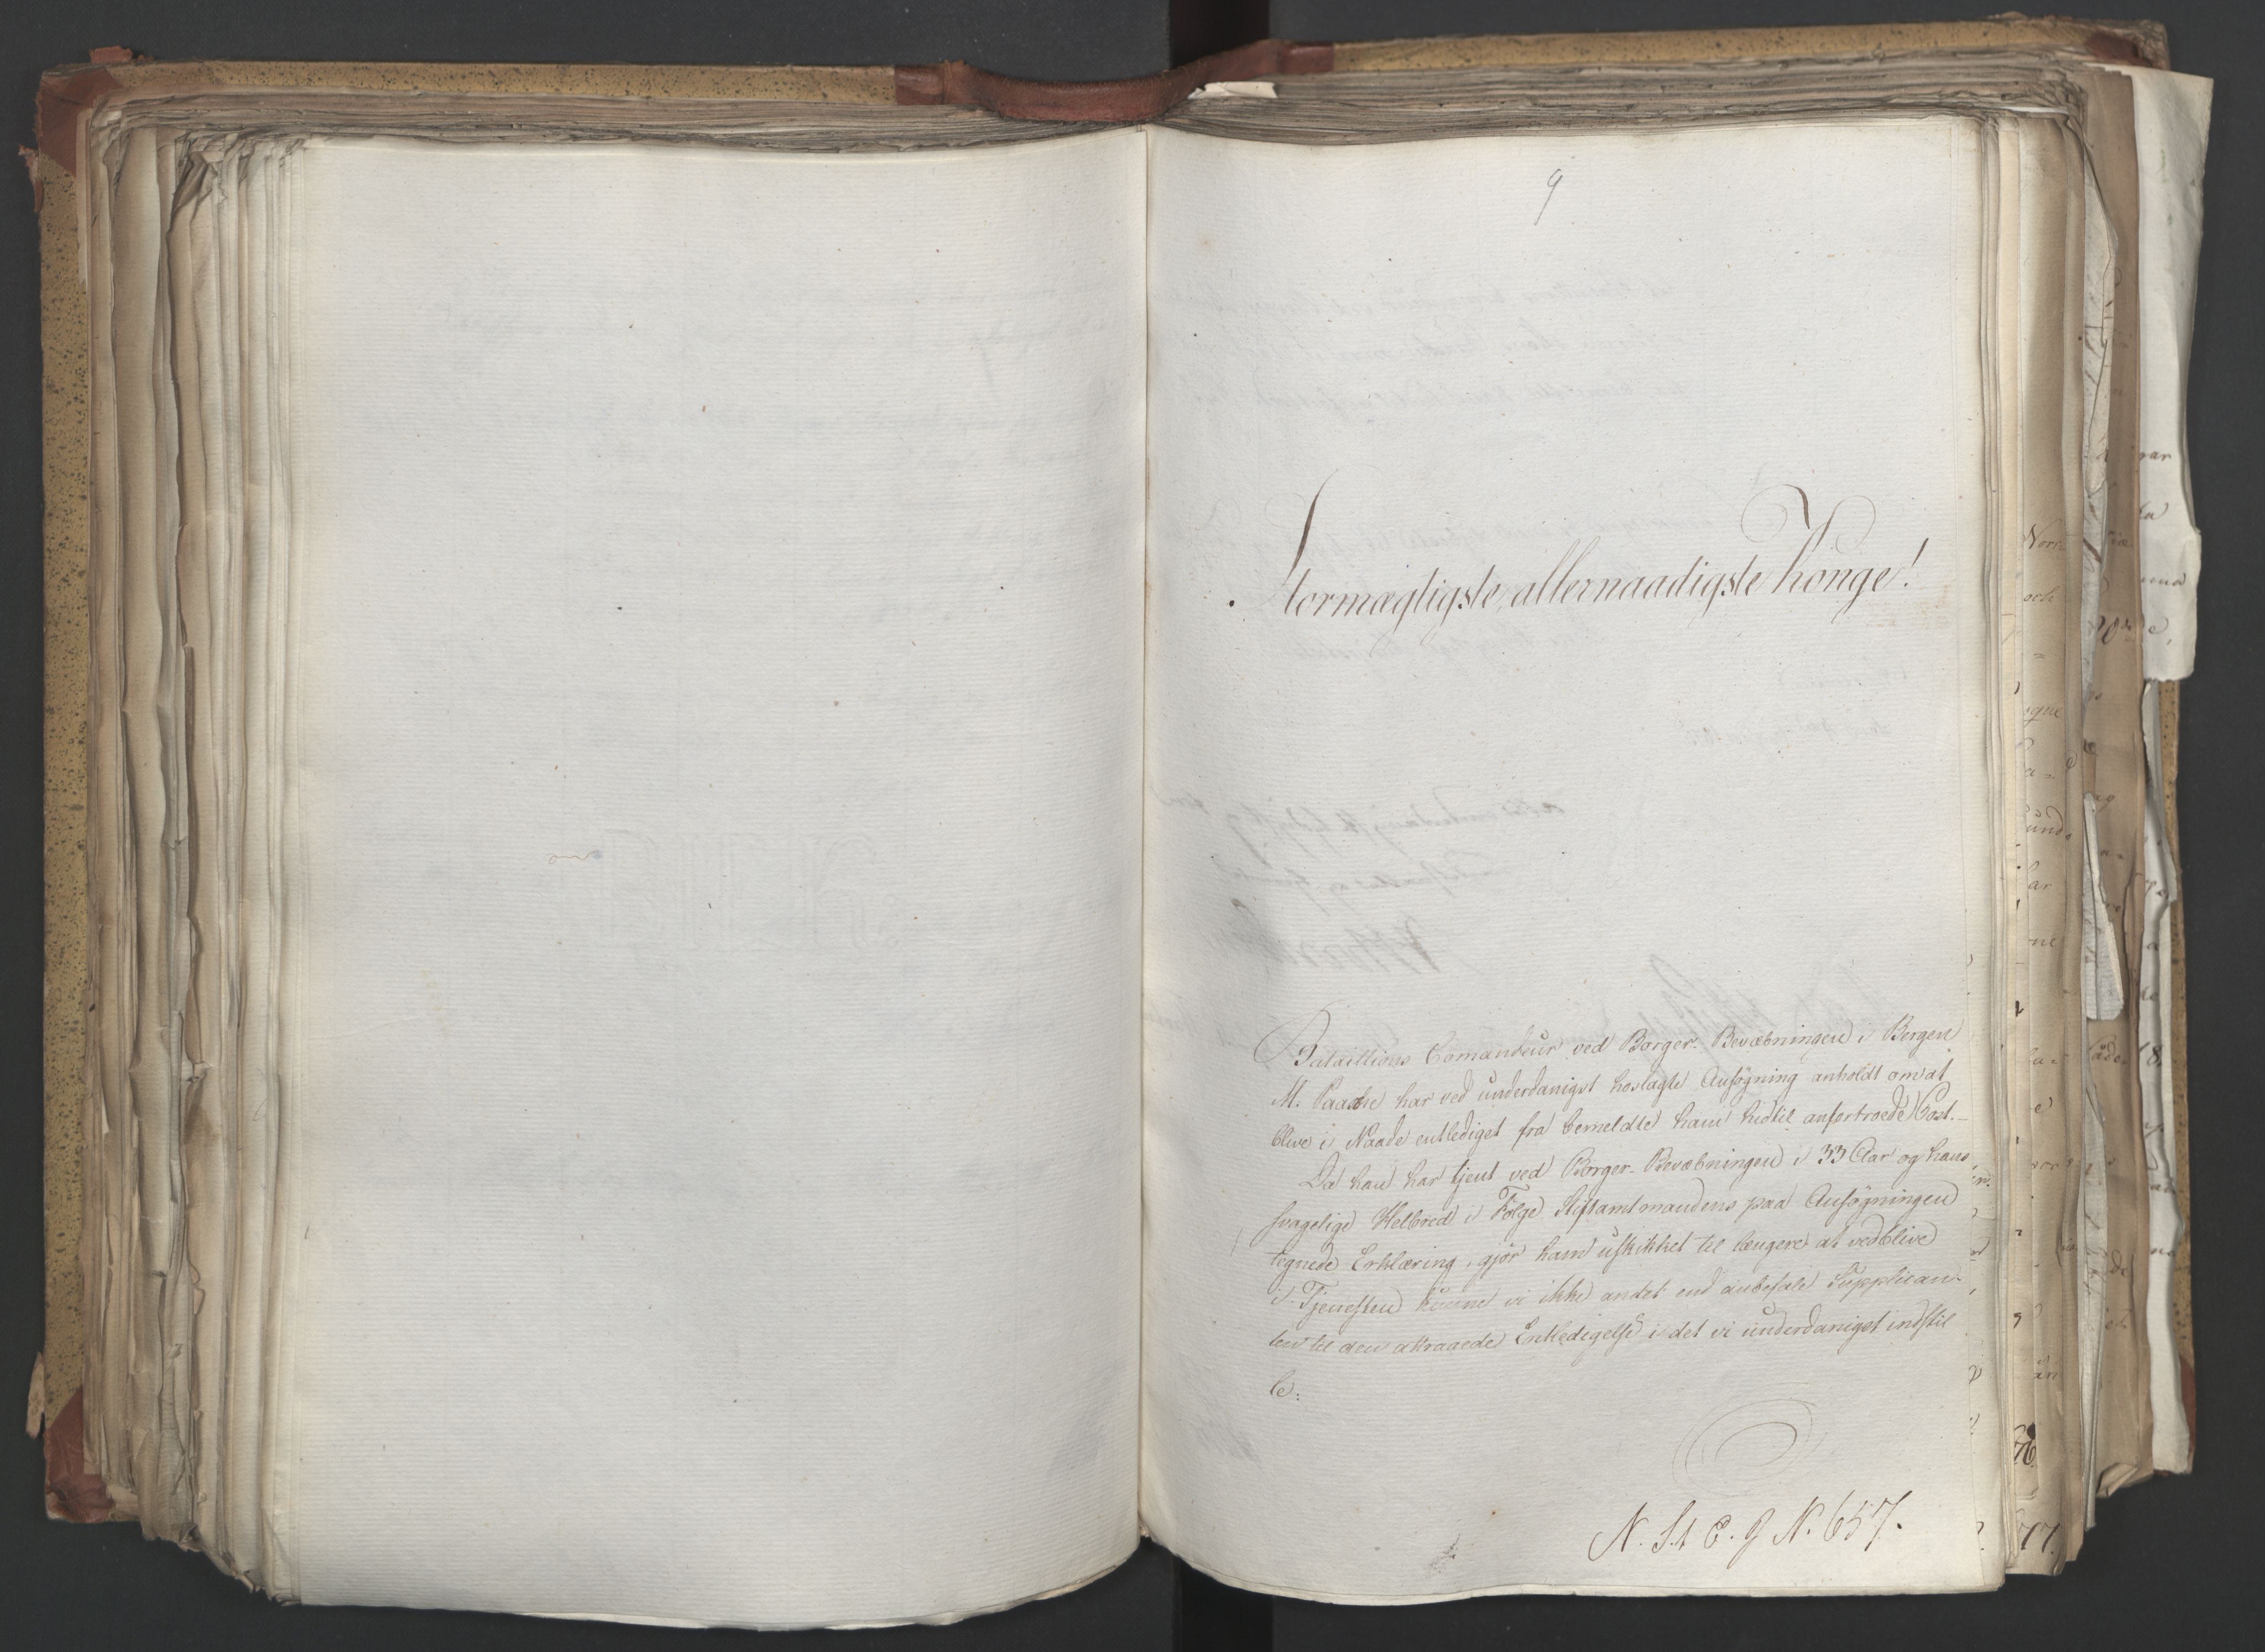 9
Stormægtigste, allernaadigste Konge!
Bataillions Comandeur ved Borger-Bevæbningen i Bergen
M. Paasche har ved underdanigst hoslagte Ansøgning anholdt om at
blive i Naade entlediget fra bemeldte ham hidtil anfortroede Post.
Da han har tjent ved Borger-Bevæbningen i 33 Aar og hans
svagelige Helbred i Følge Stiftamtmandens paa Ansøgningen
tegnede Erklæring, gjør ham uskikket til længere at vedblive
i Tjenesten kunne vi ikke andet end anbefale Supplican-
ten til den attraaede Entledigelse i det vi underdanigst indstil
le:
N. St. E. 9 N. 657.